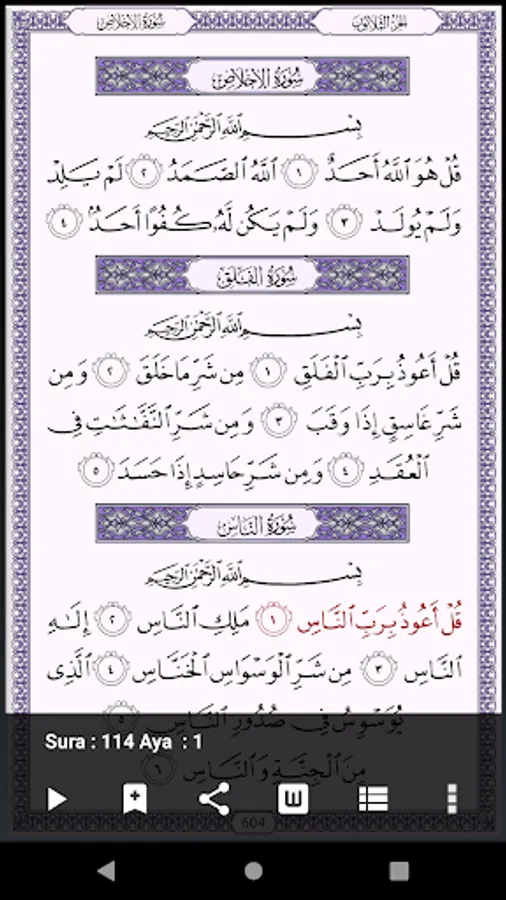 الجزء الثلاثون
سُورَةُ الإِخْلَاصِ
سُورَةُ الإِخْلَاصِ
بِسْمِ اللَّهِ الرَّحْمَٰنِ الرَّحِيمِ
قُلْ هُوَ ٱللَّهُ أَحَدٌ ١ ٱللَّهُ ٱلصَّمَدُ ٢ لَمْ يَلِدْ
وَلَمْ يُولَدْ ٣ وَلَمْ يَكُن لَّهُۥ كُفُوًا أَحَدٌۢ ٤
سُورَةُ الفَلَقِ
بِسْمِ اللَّهِ الرَّحْمَٰنِ الرَّحِيمِ
قُلْ أَعُوذُ بِرَبِّ ٱلْفَلَقِ ١ مِن شَرِّ مَا خَلَقَ ٢ وَمِن
شَرِّ غَاسِقٍ إِذَا وَقَبَ ٣ وَمِن شَرِّ ٱلنَّفَّٰثَٰتِ فِى
ٱلْعُقَدِ ٤ وَمِن شَرِّ حَاسِدٍ إِذَا حَسَدَ ٥
سُورَةُ النَّاسِ
بِسْمِ اللَّهِ الرَّحْمَٰنِ الرَّحِيمِ
قُلْ أَعُوذُ بِرَبِّ ٱلنَّاسِ ١ مَلِكِ ٱلنَّاسِ ٢ إِلَٰهِ
ٱلنَّاسِ ٣ مِن شَرِّ ٱلْوَسْوَاسِ ٱلْخَنَّاسِ ٤ ٱلَّذِى
يُوَسْوِسُ فِى صُدُورِ ٱلنَّاسِ ٥
Sura : 114 Aya : 1
مِنَ ٱلْجِنَّةِ وَٱلنَّاسِ ٦
W
604